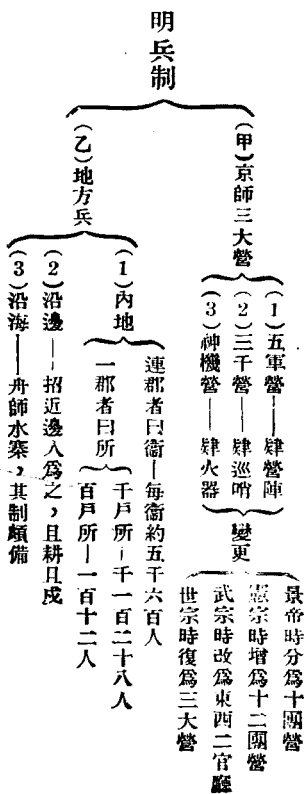 明兵制
(甲)京師三大營
(1)五軍營——肄營陣
(2)三千營——肄巡哨
(3)神機營——肄火器
變更
景帝時分爲十團營
憲宗時增爲十二團營
武宗時改爲東西二官廳
世宗時復爲三大營
(乙)地方兵
(1)內地
連郡者曰衞—每衞約五千六百人
一郡者曰所
千戶所—千一百二十八人
百戶所—一百十二人
(2)沿邊——招近邊人爲之,且耕且戍
(3)沿海——舟師水寨,其制頗備